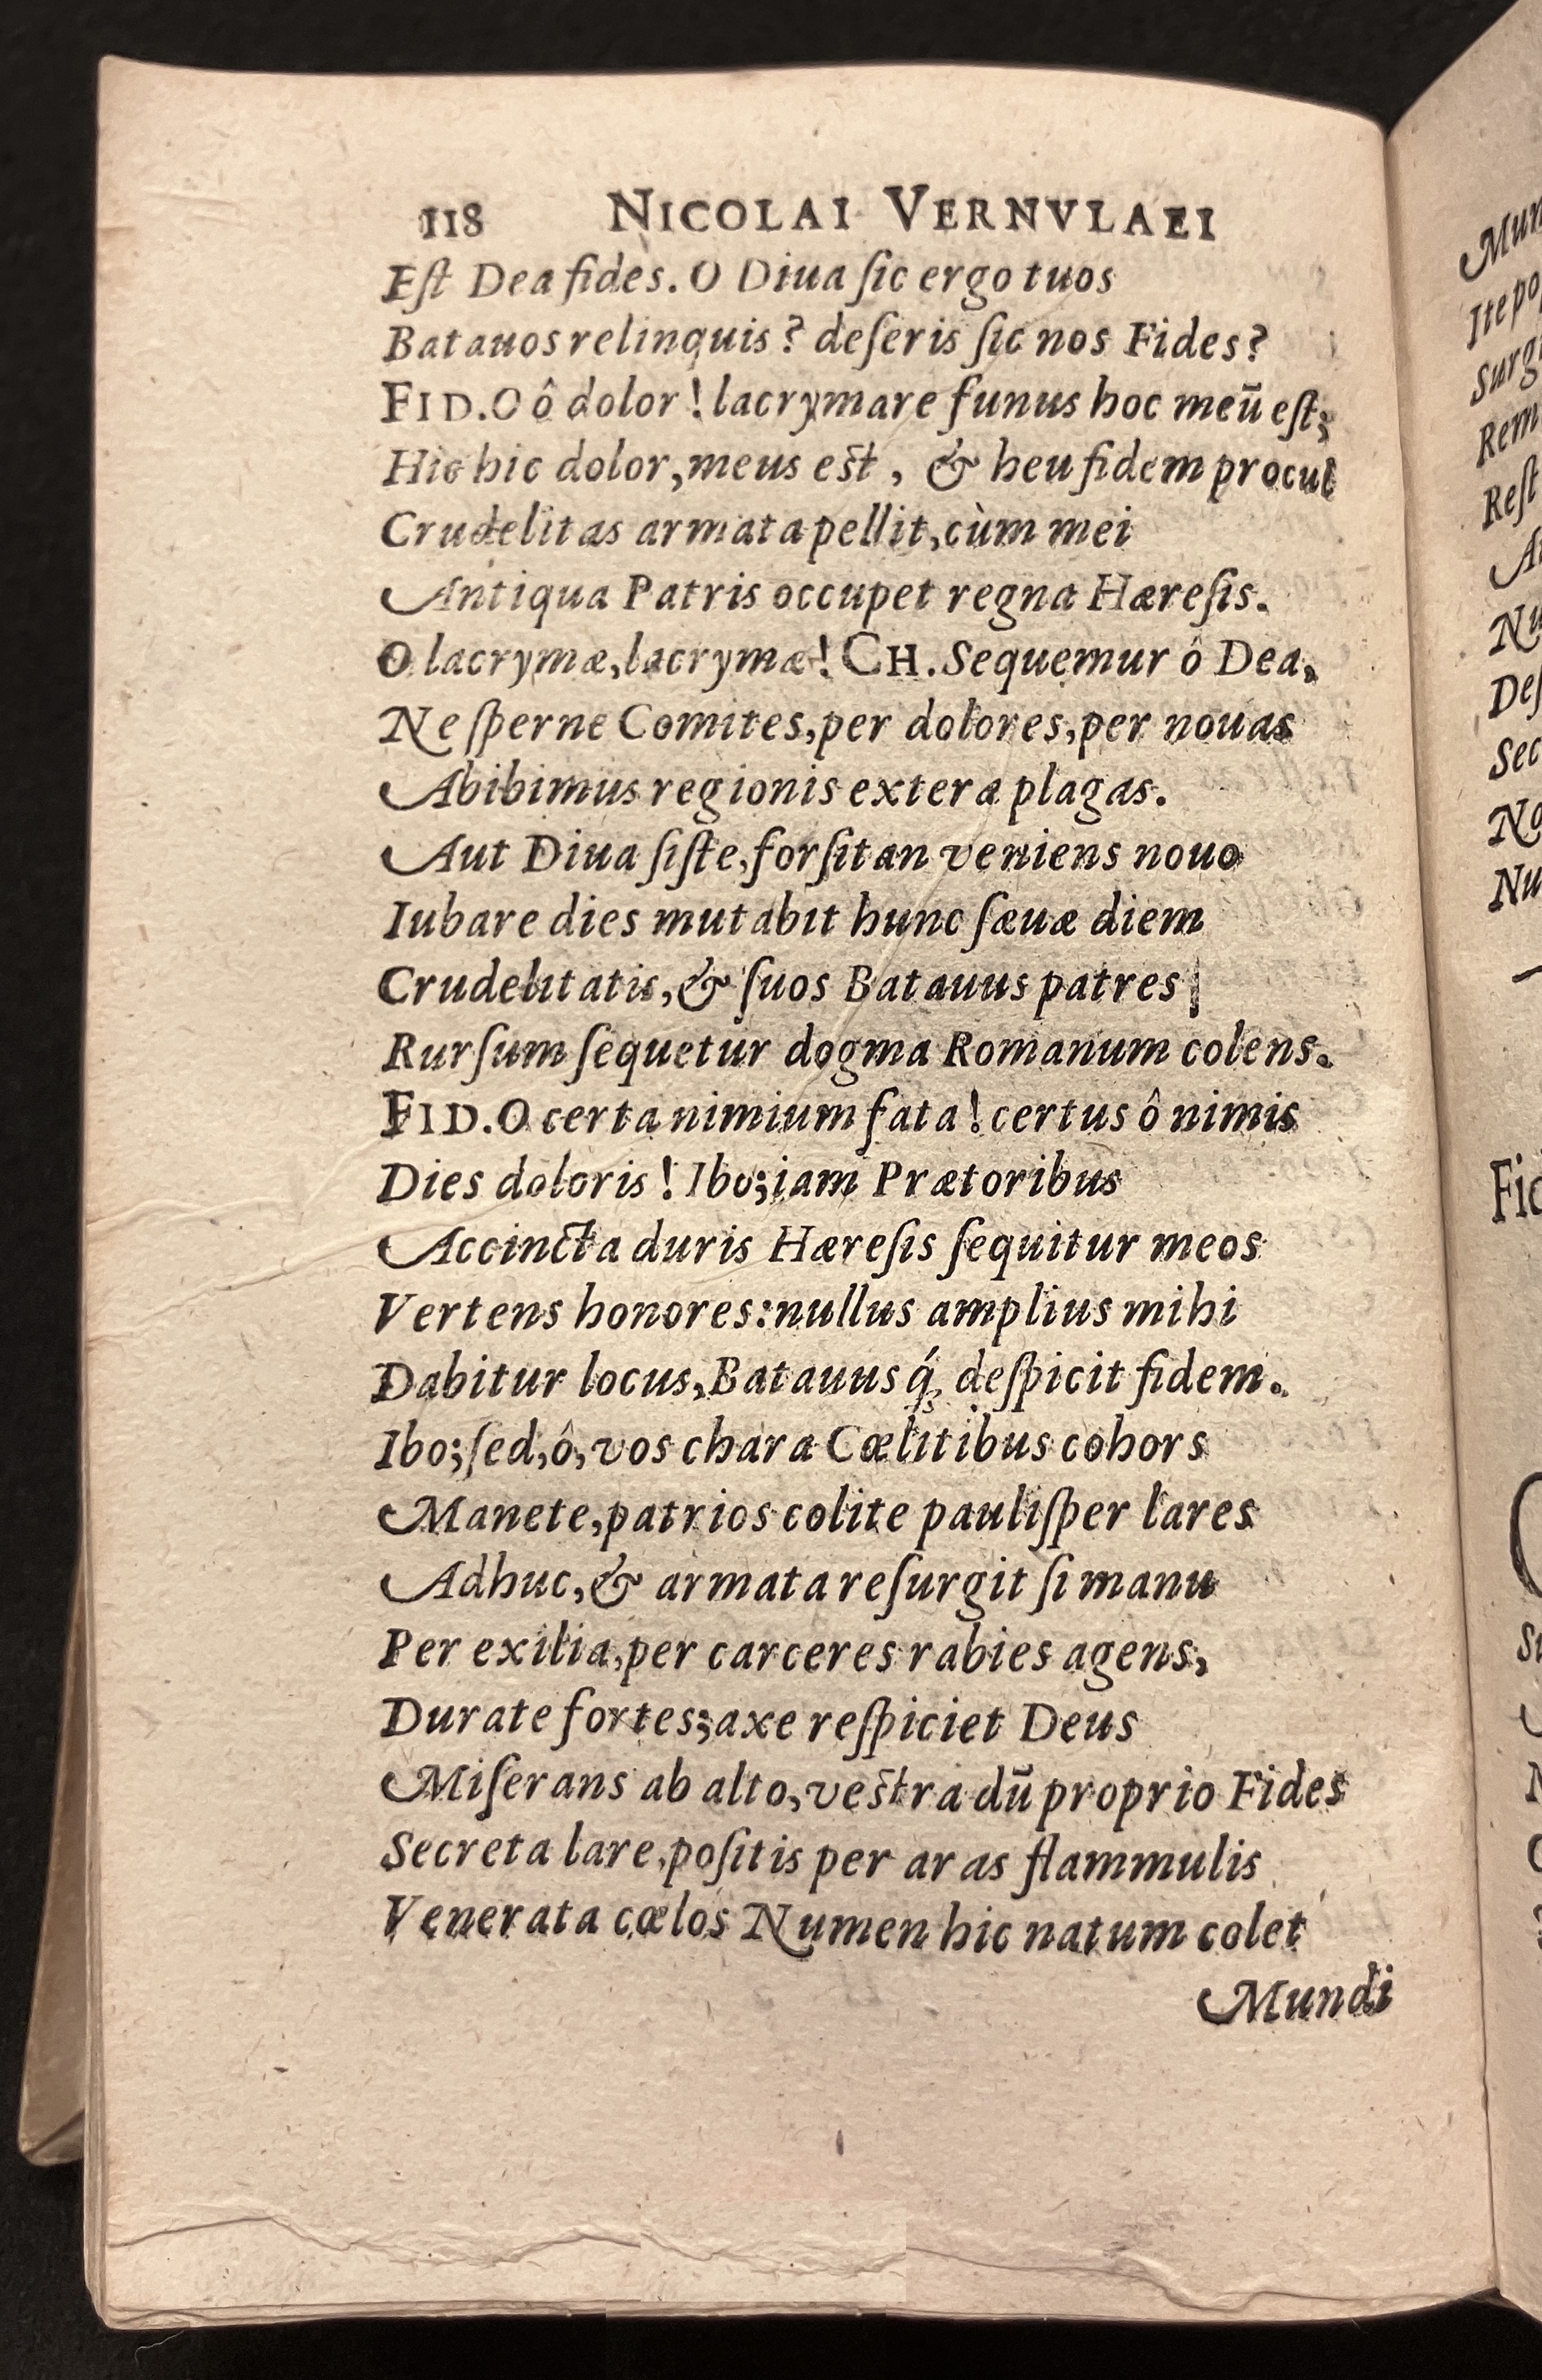 118 NICOLAI VERNVLAEI
Eſt Dea fides. O Diua ſic ergo tuos
Batauos relinquis? deſeris ſic nos Fides?
FID. O ô dolor! lacrymare funus hoc meū eſt;
Hic hic dolor, meus est, & heu fidem procul
Crudelitas armata pellit, cùm mei
Antiqua Patris occupet regna Hæreſis.
O lacrymæ, lacrymæ! CH. Sequemur ô Dea,
Ne ſperne Comites, per dolores, per nouas
Abibimus regionis extera plagas.
Aut Diua ſiſte, forſitan veniens nouo
Iubare dies mutabit hunc ſæuæ diem
Crudelitatis, & ſuos Batauus patres
Rurſum ſequetur dogma Romanum colens.
FID. O certa nimium fata! certus ô nimis
Dies doloris! Ibo; iam Prætoribus
Accincta duris Hæreſis ſequitur meos
Vertens honores: nullus amplius mihi
Dabitur locus, Batauusq́; deſpicit fidem.
Ibo; ſed, ô, vos chara Cœlitibus cohors
Manete, patrios colite pauliſper lares
Adhuc, & armata reſurgit ſi manu
Per exilia, per carceres rabies agens,
Durate fortes; axe reſpiciet Deus
Miſerans ab alto, vestra dū proprio Fides
Secreta lare, poſitis per aras flammulis
Venerata cœlos Numen hic natum colet
Mundi
Mun
Ite po
Surg
Rem
Reſt
Nu
Deſ
Sec
No
Nu
Fid